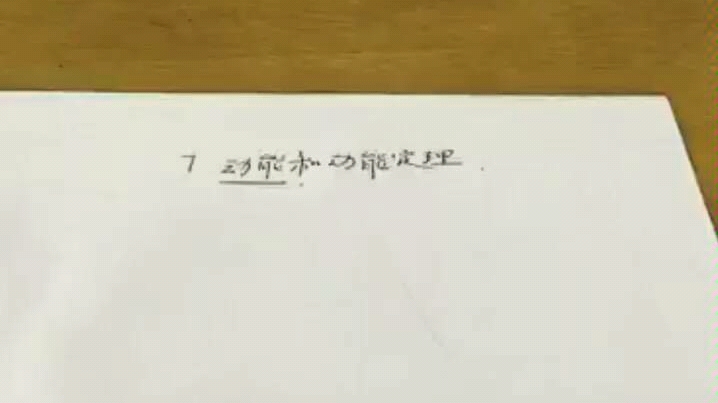 7 动能和动能定理.